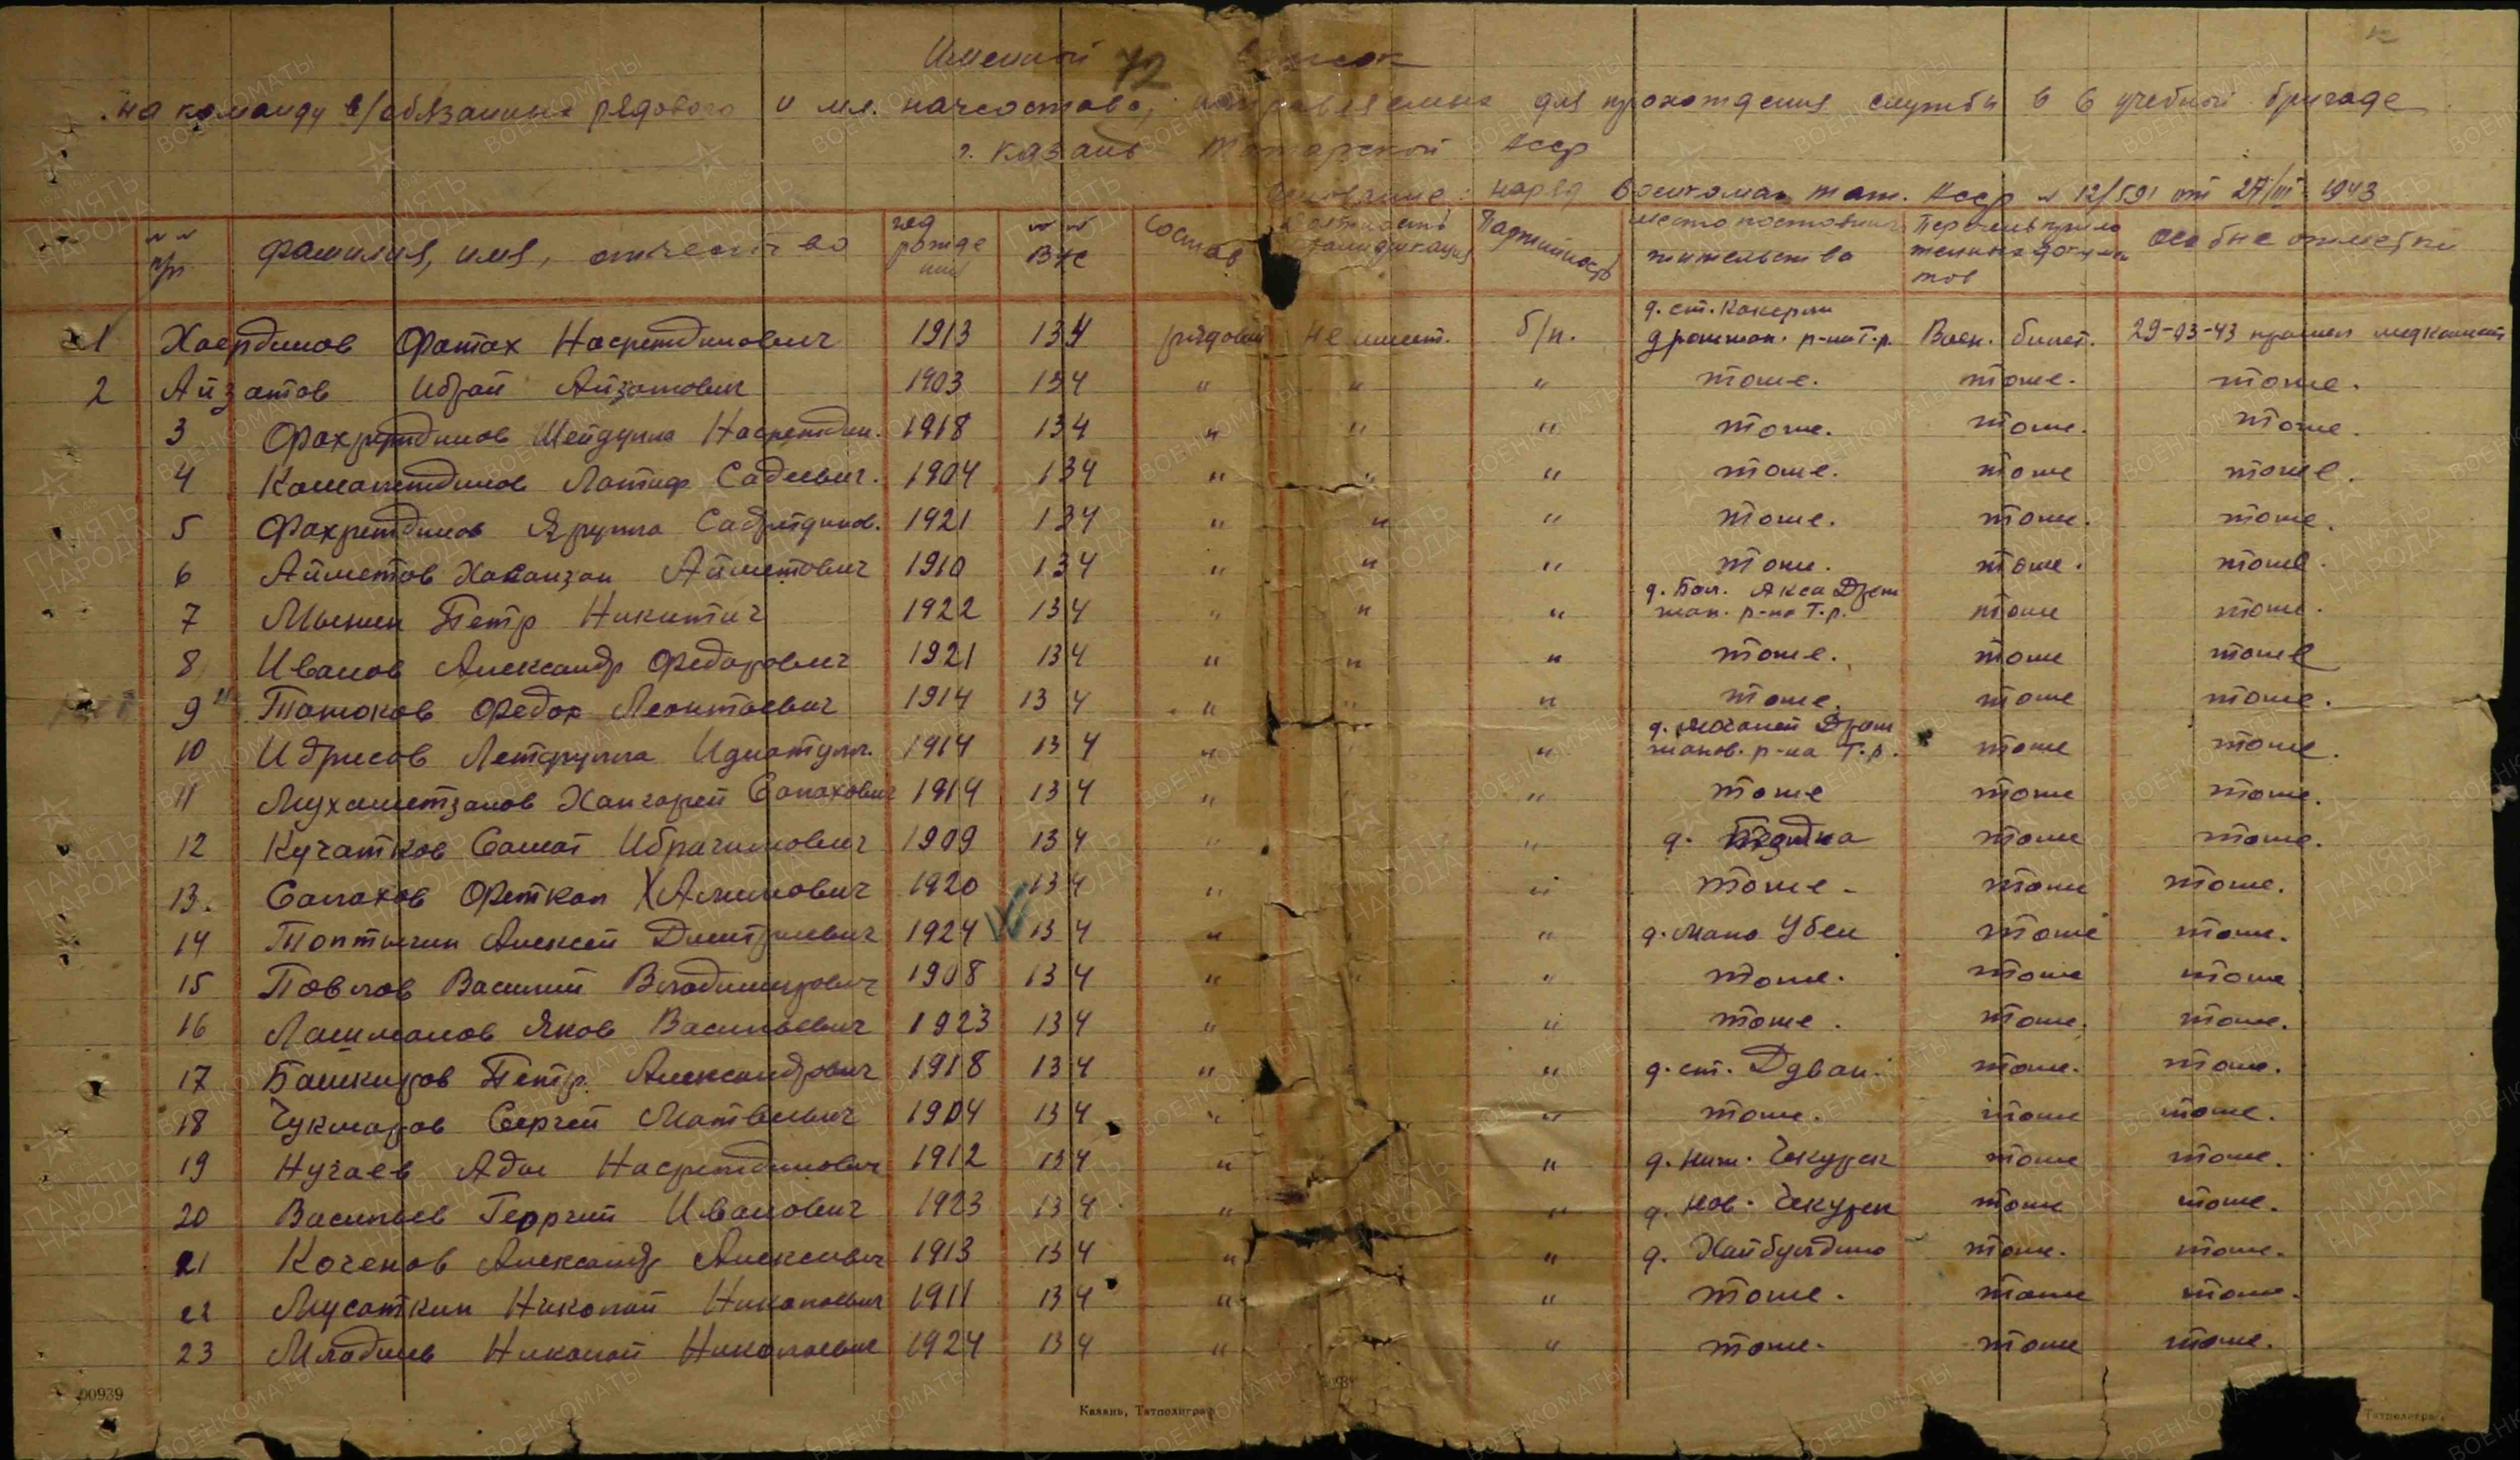 Именной 72 список
на команду в/обязанных рядового и мл. начсостава, направляемых для прохождения службы в 6 учебной бригаде
г. Казань Татарской АССР
Основание: наряд Военкомат Тат. АССР № 12/591 от 27/III 1943
№№ п/п фамилия, имя, отчество год рождения №№ ВУС Состав Должность квалификация Партийность место постоянного жительства Перечень приложенных документов особые отметки
1 Хаердинов Фатах Насретдинович 1913 134 рядовой не имеет. б/п. д. ст. Какерли Дрожжан. р-на Т.р. Воен. билет. 29-03-43 прошел медкомисс
2 Айзатов Ибрай Айзатович 1903 134 " " " тоже. тоже. тоже.
3 Фахретдинов Шейдулла Насретдин. 1918 134 " " " тоже. тоже. тоже.
4 Камалетдинов Латиф Садиевич. 1904 134 " " " тоже. тоже тоже.
5 Фахретдинов Ярулла Садретдинов. 1921 134 " " " тоже. тоже. тоже.
6 Айметов Хасанзан Айметович 1910 134 " " " тоже. тоже. тоже.
7 Мынин Петр Никитич 1922 134 " " " д. Бол. Акса Дрожжан. р-на Т.р. тоже тоже.
8 Иванов Александр Федорович 1921 134 " " " тоже. тоже тоже
9 Татюков Федор Леонтьевич 1914 134 " " " тоже. тоже тоже.
10 Идрисов Летфулла Идиатулл. 1914 134 " " " д. Мочалей Дрожжанов. р-на Т.р. тоже тоже.
11 Мухаметзанов Хангарей Салахович 1914 134 " " тоже тоже тоже.
12 Кучатков Самат Ибрагимович 1909 134 " " д. тоже тоже.
13. Салахов Фаткан Халимович 1920 134 " " тоже - тоже тоже.
14 Топтыгин Алексей Дмитриевич 1924 134 " " д. Мало Убеи тоже тоже.
15 Павлов Василий Владимирович 1908 134 " " " тоже. тоже тоже
16 Лашманов Яков Васильевич 1923 134 " " тоже. тоже. тоже.
17 Башкиров Петр. Александрович 1918 134 " " д. ст. Дуван. тоже. тоже.
18 Чукмаров Сергей Матвеевич 1904 134 " " тоже. тоже тоже.
19 Нугаев Адие Насретдинович 1912 134 " " д. ниж. Чекурск тоже тоже.
20 Васильев Георгий Иванович 1923 134 " " д. нов. Чекурск тоже тоже.
21 Коченов Александр Алексеевич 1913 134 " " д. Хайбулдино тоже. тоже.
22 Мусаткин Николай Николаевич 1911 134 " " тоже. тоже тоже.
23 Младиев Николай Николаевич 1924 134 " " тоже. тоже тоже.
00939
Казань, Татполиграф
Татполиграф
ПАМЯТЬ НАРОДА
ВОЕНКОМАТЫ